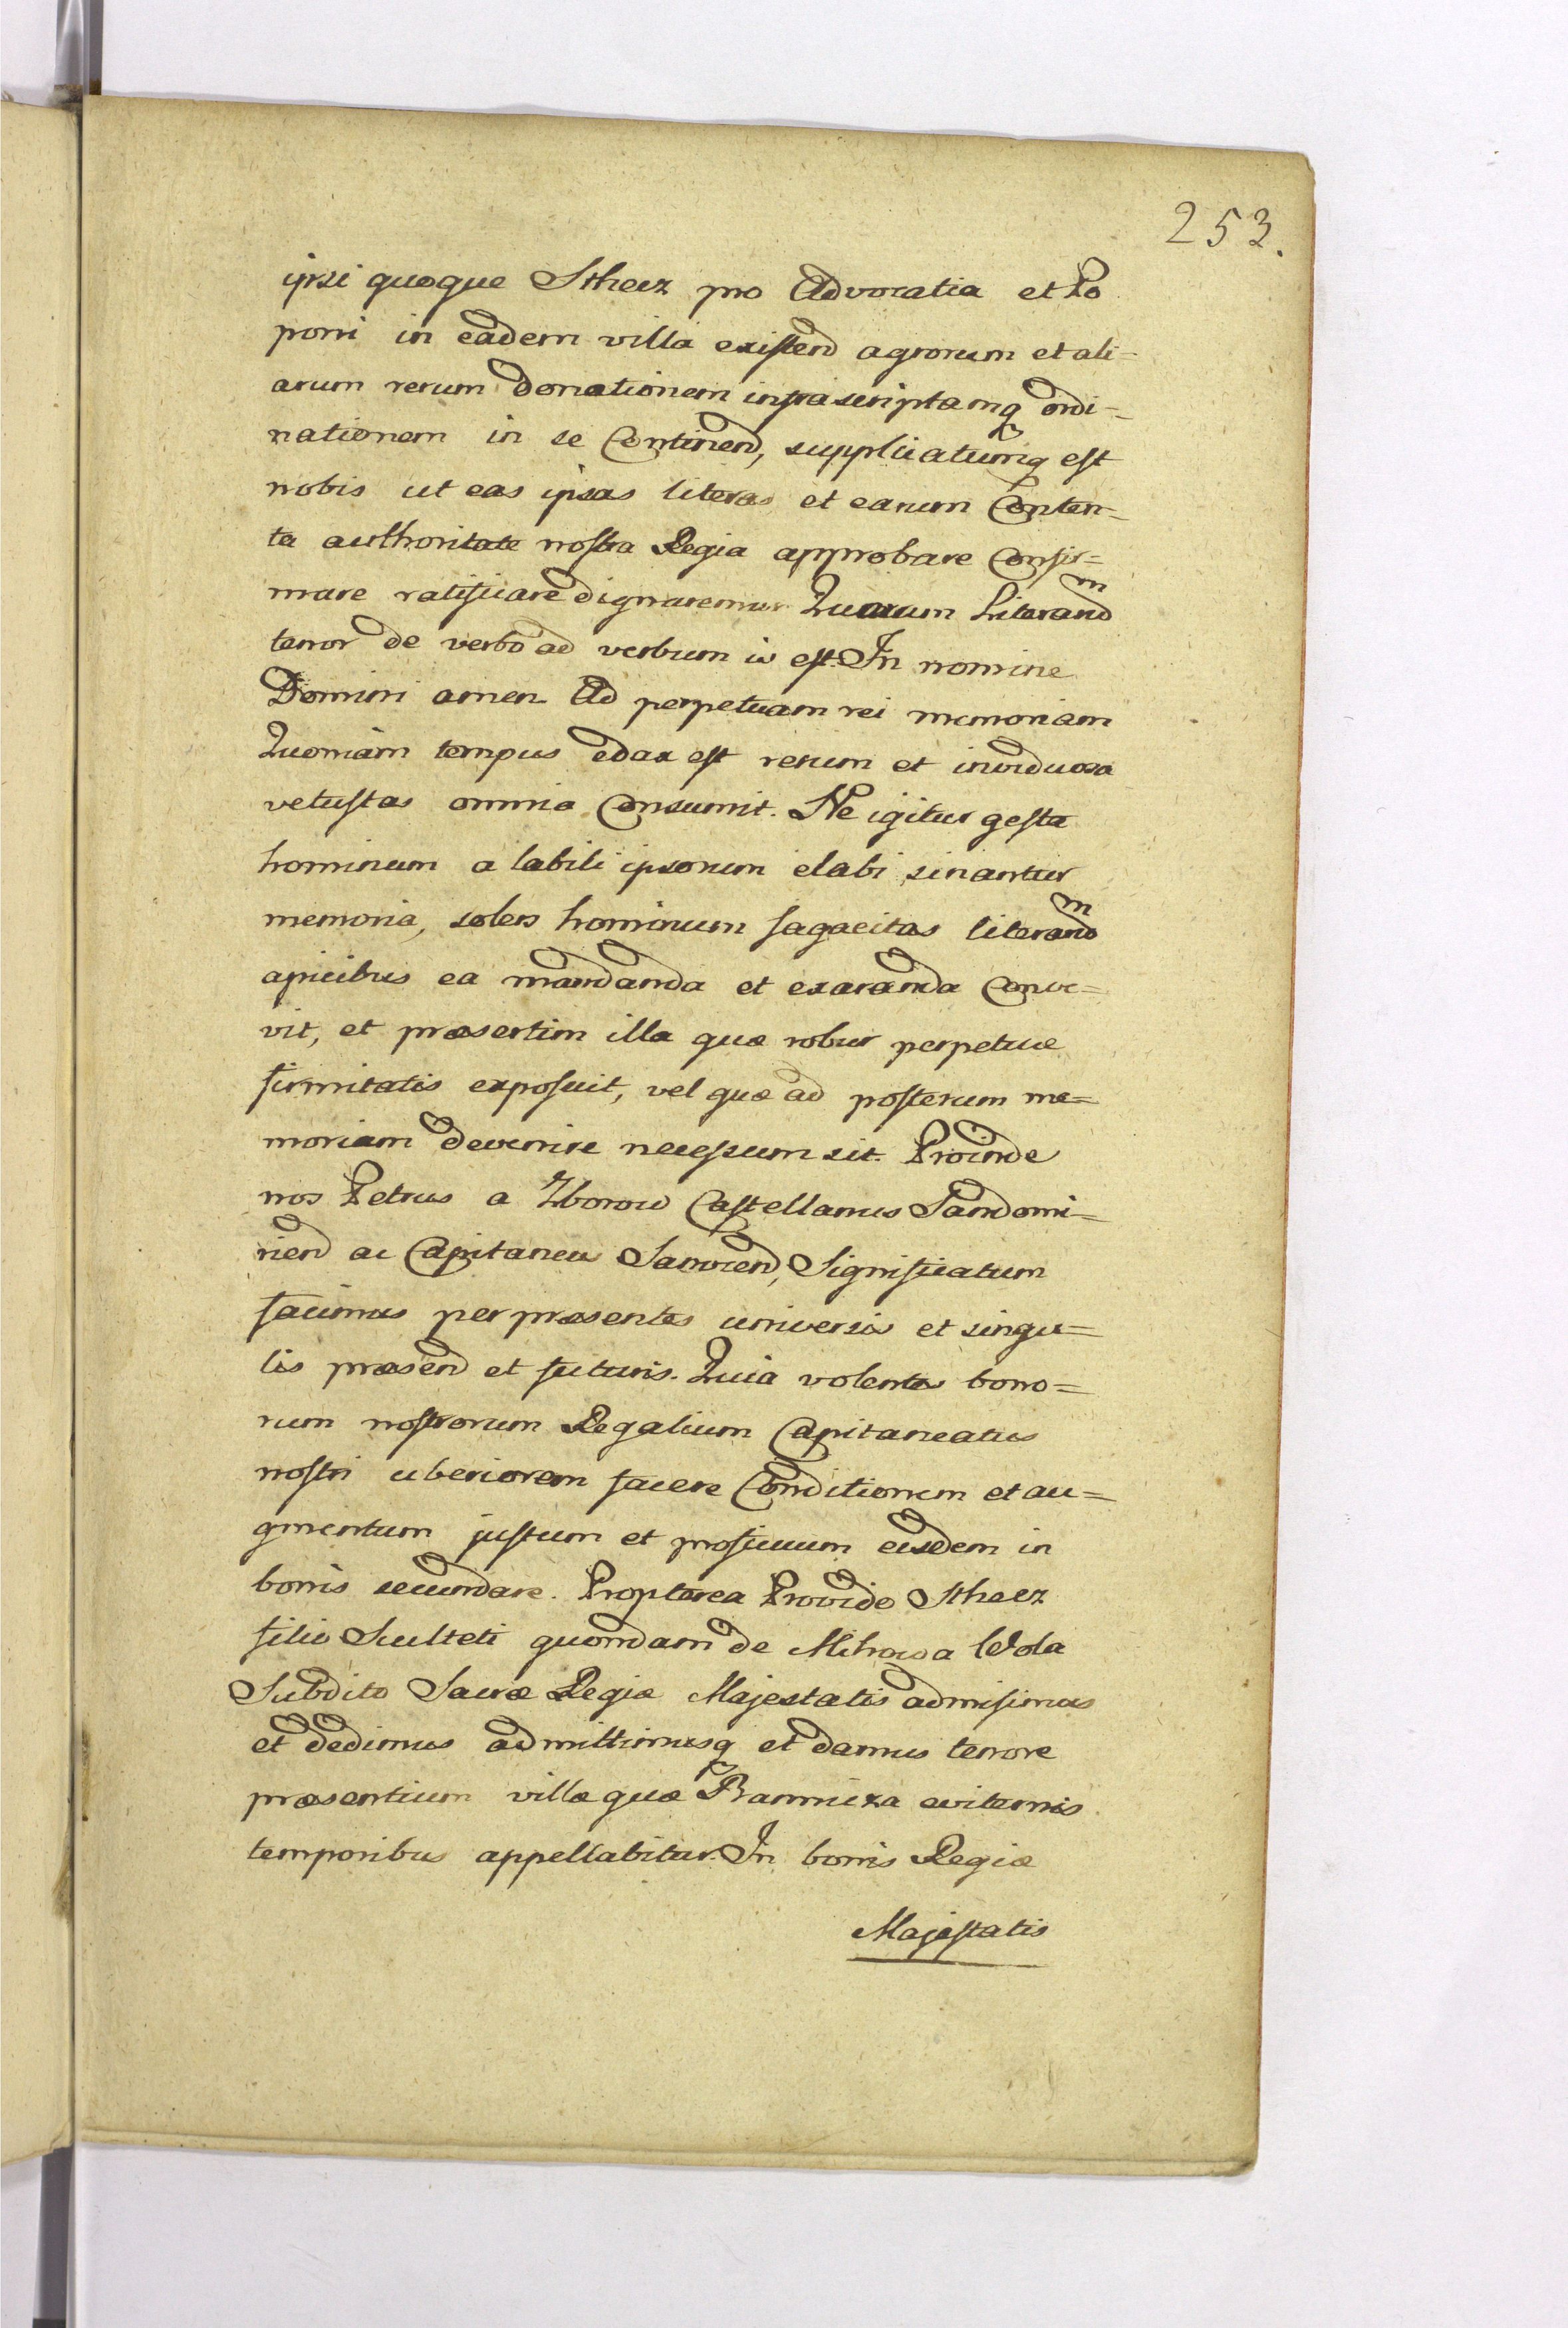 253.
ipsi quoque Sthecz pro Advocatia et Po
poni in eadem villa existend agrorum et ali=
arum rerum donationem infrascriptamq ordi=
nationem in se Continend, supplicatumq est
nobis ut eas ipsas literas et earum Conten=
ta authoritate nostra Regia approbare Confir=
mare ratificare dignaremur Quarum Literarum
tenor de verbo ad verbum is est. In nomine
Domini amen Ad perpetuam rei memoriam
Quoniam tempus edax est rerum et inviduosa
vetustas omnia Consumit. Ne igitur gesta
hominum a labili ipsorum elabi sinantur
memoria, solers hominum sagacitas literarum
apicibus ea mandanda et exaranda Conve=
vit, et præsertim illa quæ robur perpetuæ
firmitatis exposuit, vel quæ ad posterum me=
moriam devenire necessum sit. Proinde
nos Petrus a Zborow Castellanus Sandomi=
riend ac Capitaneus Sanocend, Significatum
facimus per præsentes universis et singu=
lis præsend et futuris. Quia volentes bono=
rum nostrorum Regalium Capitaneatus
nostri uberiorem facere Conditionem et au=
gmentum justum et proficuum eisdem in
bonis secundare. Propterea Provido Sthecz
filio Sculteti quondam de Mihowa Wola
Subdito Sacræ Regiæ Majestatis admisimus
et dedimus admittimusq et damus tenore
præsentium villæ quæ Bannicza eviternis
temporibus appellabitur. In bonis Regiæ
Majestatis